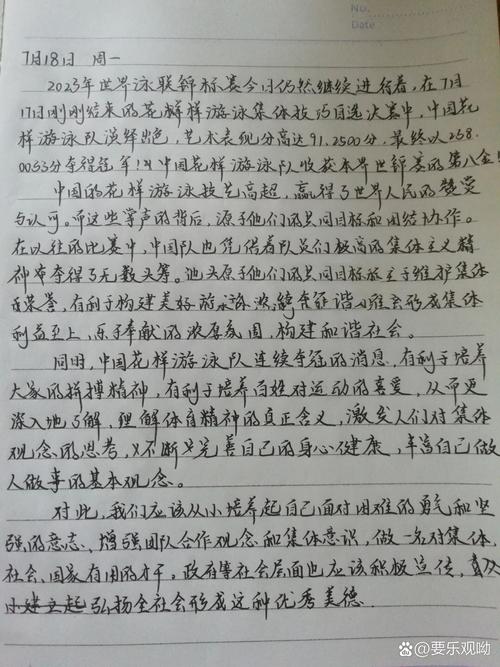 No.
Date
7月18日 周一
2023年世界泳联锦标赛今日仍然继续进行着，在7月
17日刚刚结束的花样游泳集体技巧自选决赛中，中国花
样游泳队演绎出色，艺术表现分高达91.2500分，最终以268.
0053分夺得冠军！中国花样游泳队收获本界世锦赛的第八金！
中国的花样游泳技艺高超，赢得了世界人民的赞赏
与认可。而这些掌声的背后，源于他们的共同目标和团结协作。
在以往的比赛中，中国队也凭借着队员们极高的集体主义精
神夺得了无数头筹。他们的共同目标在于维护集体
荣誉，有利于构建美好 形成集体
利益至上，乐于奉献的浓厚氛围，构建和谐社会。
同时，中国花样游泳队连续夺冠的消息，有利于培养
大家的拼搏精神，有利于培养百姓对运动的喜爱，从而更
深入地了解，理解体育精神的真正含义，激发人们对集体
观念的思考，不断完善自己的身心健康，丰富自己做
人做事的基本观念。
对此，我们应该从小培养起自己面对困难的勇气和坚
强的意志，增强团队合作观念和集体意识，做一名对集体、
社会、国家有用的才干。政府等社会层面也应该积极宣传，
建立起弘扬全社会形成这种优秀美德.
百度@要乐观呦